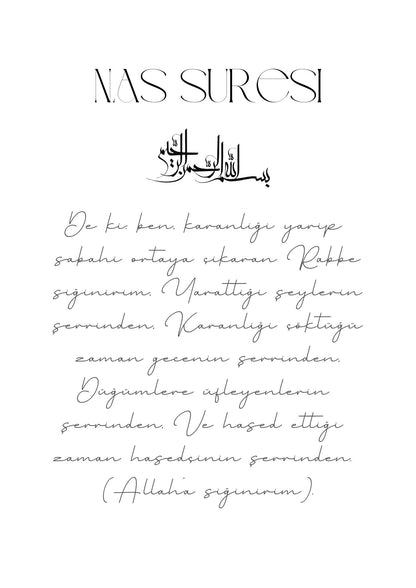 NAS SURESI
بسم الله الرحمن الرحيم
De ki, ben, karanlığı yarıp
sabahı ortaya çıkaran Rabbe
sığınırım, Yarattığı şeylerin
şerrinden, Karanlığı çöktüğü
zaman gecenin şerrinden,
Düğümlere üfleyenlerin
şerrinden, Ve hased ettiği
zaman hasedçinin şerrinden,
(Allah'a sığınırım).